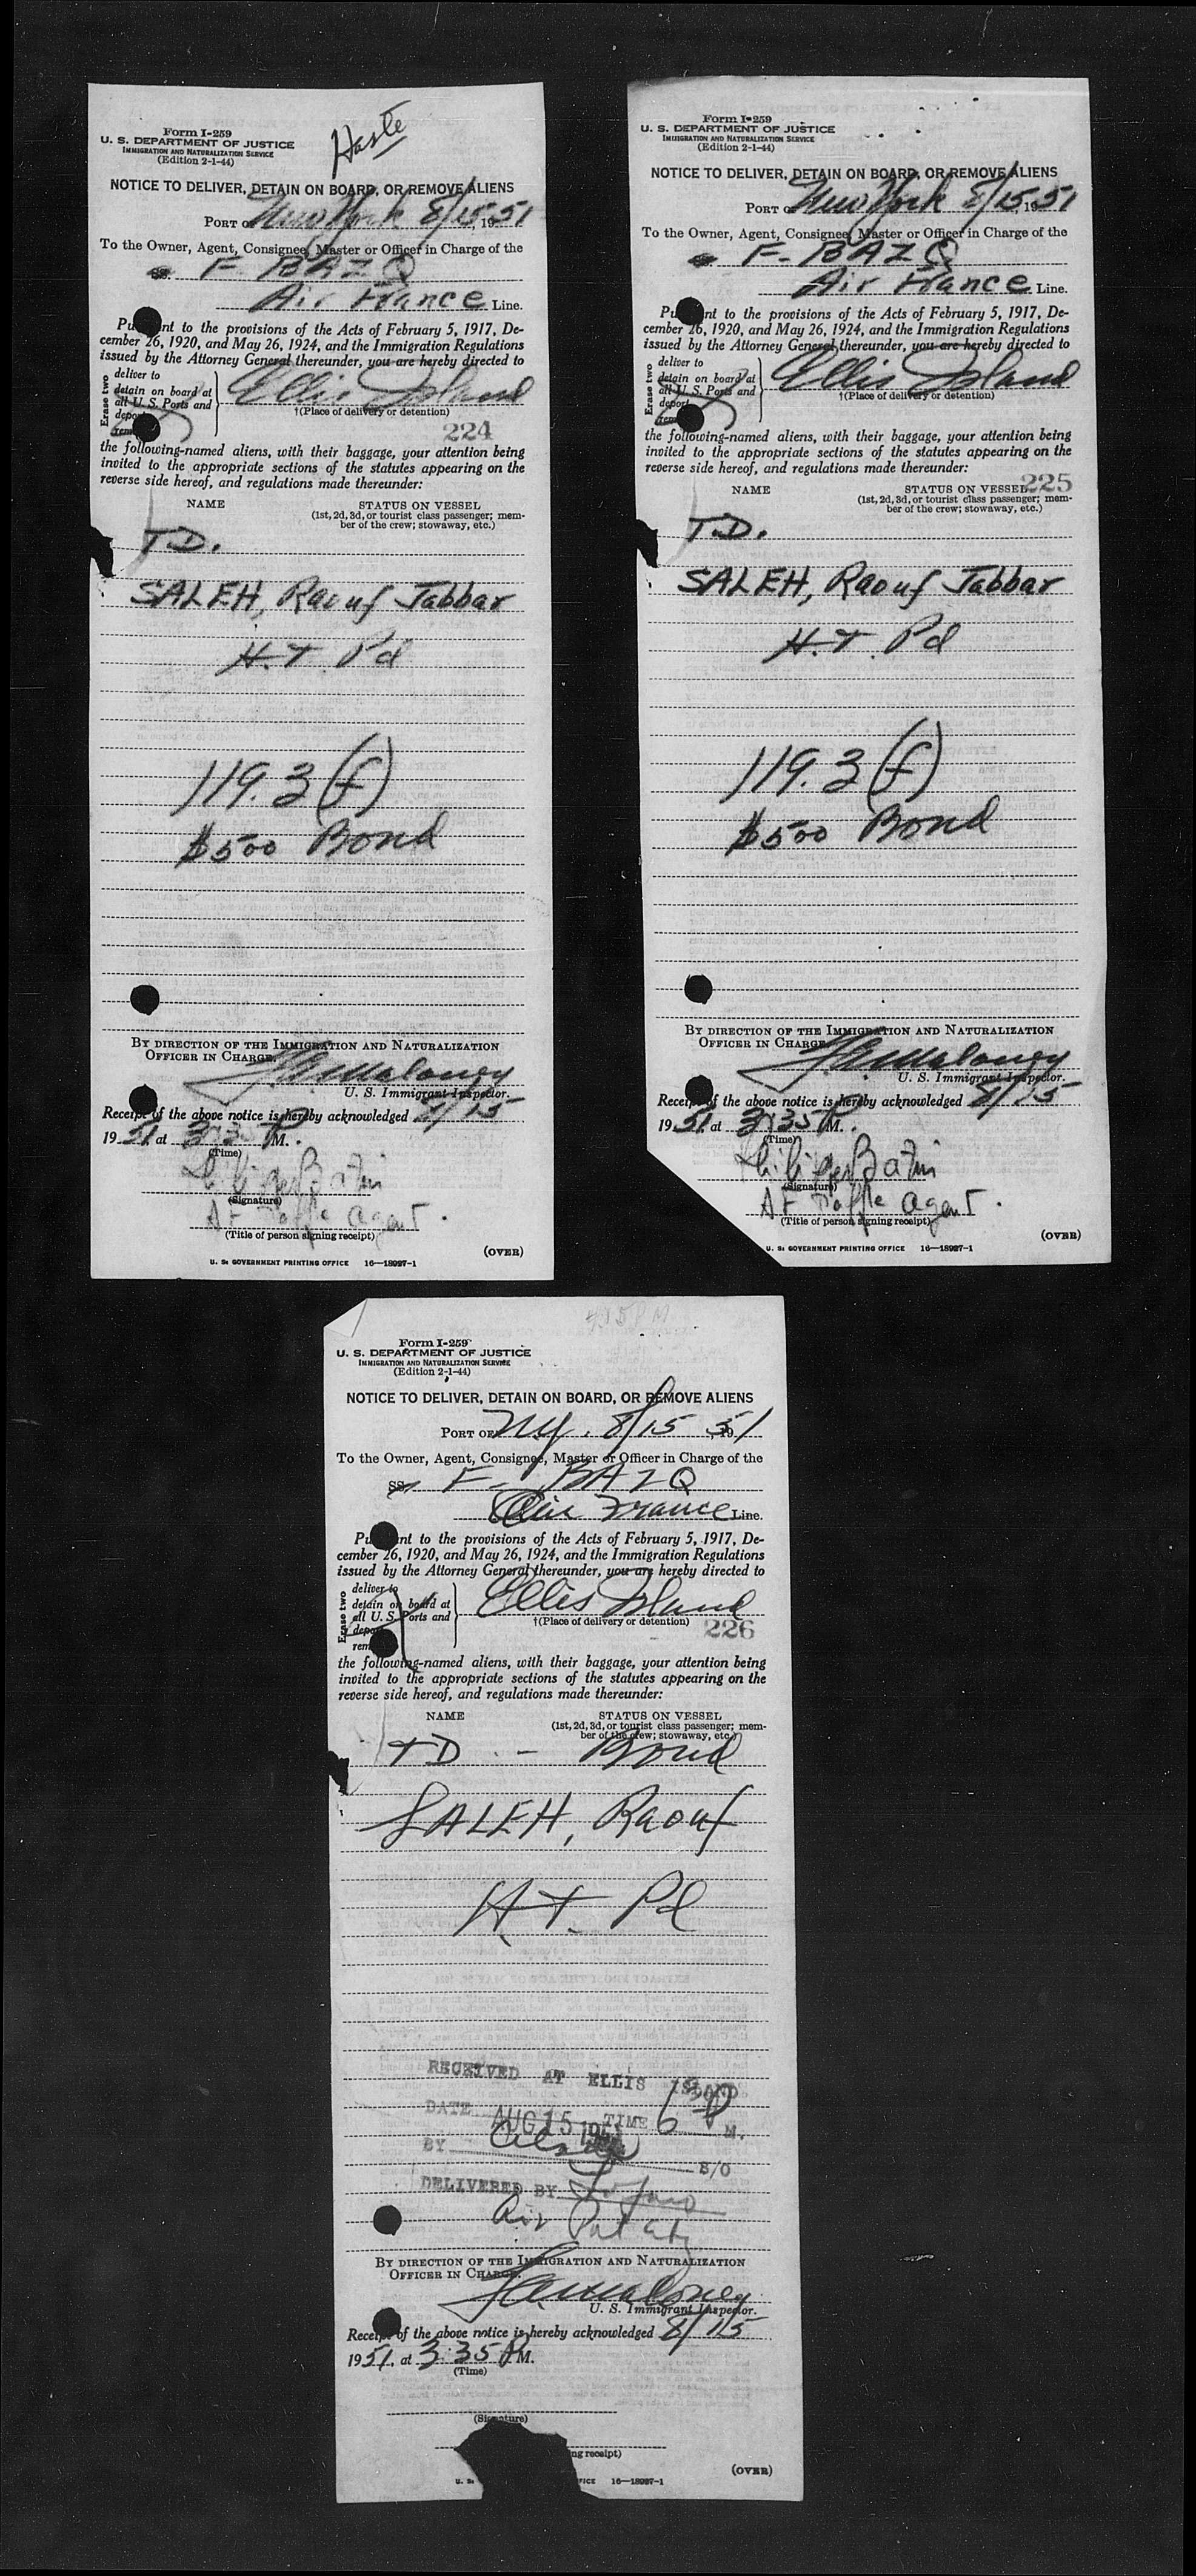 Form I-259
U. S. DEPARTMENT OF JUSTICE
IMMIGRATION AND NATURALIZATION SERVICE
(Edition 2-1-44)
Haste
NOTICE TO DELIVER, DETAIN ON BOARD, OR REMOVE ALIENS
PORT OF New York 8/15, 1951
To the Owner, Agent, Consignee, Master or Officer in Charge of the
F- BAZQ
Air France Line.
Pu nt to the provisions of the Acts of February 5, 1917, De-
cember 26, 1920, and May 26, 1924, and the Immigration Regulations
issued by the Attorney General thereunder, you are hereby directed to
Erase two
deliver to
detain on board at
all U. S. Ports and
depor
rem
Ellis Island
†(Place of delivery or detention)
224
the following-named aliens, with their baggage, your attention being
invited to the appropriate sections of the statutes appearing on the
reverse side hereof, and regulations made thereunder:
NAME STATUS ON VESSEL
(1st, 2d, 3d, or tourist class passenger; mem-
ber of the crew; stowaway, etc.)
T.D.
SALEH, Raouf Jabbar
H.T. Pd
119.3 (f)
$500 Bond
BY DIRECTION OF THE IMMIGRATION AND NATURALIZATION
OFFICER IN CHARGE.
Maloney
U. S. Immigrant Inspector.
Receipt of the above notice is hereby acknowledged 8/15
1951 at 3:35 P M.
(Time)
(Signature)
AF Traffic Agent.
(Title of person signing receipt)
(OVER)
U. S. GOVERNMENT PRINTING OFFICE 16—18927-1
Form I-259
U. S. DEPARTMENT OF JUSTICE
IMMIGRATION AND NATURALIZATION SERVICE
(Edition 2-1-44)
NOTICE TO DELIVER, DETAIN ON BOARD, OR REMOVE ALIENS
PORT OF New York 8/15, 1951
To the Owner, Agent, Consignee, Master or Officer in Charge of the
F- BAZQ
Air France Line.
Pu nt to the provisions of the Acts of February 5, 1917, De-
cember 26, 1920, and May 26, 1924, and the Immigration Regulations
issued by the Attorney General thereunder, you are hereby directed to
Erase two
deliver to
detain on board at
all U. S. Ports and
deport
rem
Ellis Island
†(Place of delivery or detention)
the following-named aliens, with their baggage, your attention being
invited to the appropriate sections of the statutes appearing on the
reverse side hereof, and regulations made thereunder:
225
NAME STATUS ON VESSEL
(1st, 2d, 3d, or tourist class passenger; mem-
ber of the crew; stowaway, etc.)
T.D.
SALEH, Raouf Jabbar
H.T. Pd
119.3 (f)
$500 Bond
BY DIRECTION OF THE IMMIGRATION AND NATURALIZATION
OFFICER IN CHARGE.
Maloney
U. S. Immigrant Inspector.
Receipt of the above notice is hereby acknowledged 8/15
1951 at 3:35 P M.
(Time)
(Signature)
AF Traffic Agent.
(Title of person signing receipt)
(OVER)
U. S. GOVERNMENT PRINTING OFFICE 16—18927-1
Form I-259
U. S. DEPARTMENT OF JUSTICE
IMMIGRATION AND NATURALIZATION SERVICE
(Edition 2-1-44)
NOTICE TO DELIVER, DETAIN ON BOARD, OR REMOVE ALIENS
PORT OF NY. 8/15, 1951
To the Owner, Agent, Consignee, Master or Officer in Charge of the
SS F- BAZQ
Air France Line.
Pu nt to the provisions of the Acts of February 5, 1917, De-
cember 26, 1920, and May 26, 1924, and the Immigration Regulations
issued by the Attorney General thereunder, you are hereby directed to
Erase two
deliver to
detain on board at
all U. S. Ports and
depor
rem
Ellis Island
†(Place of delivery or detention)
226
the following-named aliens, with their baggage, your attention being
invited to the appropriate sections of the statutes appearing on the
reverse side hereof, and regulations made thereunder:
NAME STATUS ON VESSEL
(1st, 2d, 3d, or tourist class passenger; mem-
ber of the crew; stowaway, etc.)
TD - Bond
SALEH, Raouf
H.T. Pd
RECEIVED AT ELLIS ISLAND
DATE AUG 15 1951 TIME 6 P M.
BY S/O
DELIVERED BY
Air
BY DIRECTION OF THE IMMIGRATION AND NATURALIZATION
OFFICER IN CHARGE.
Maloney
U. S. Immigrant Inspector.
Receipt of the above notice is hereby acknowledged 8/15
1951. at 3:35 P M.
(Time)
(Signature)
ng receipt)
(OVER)
U. S. FICE 16—18927-1